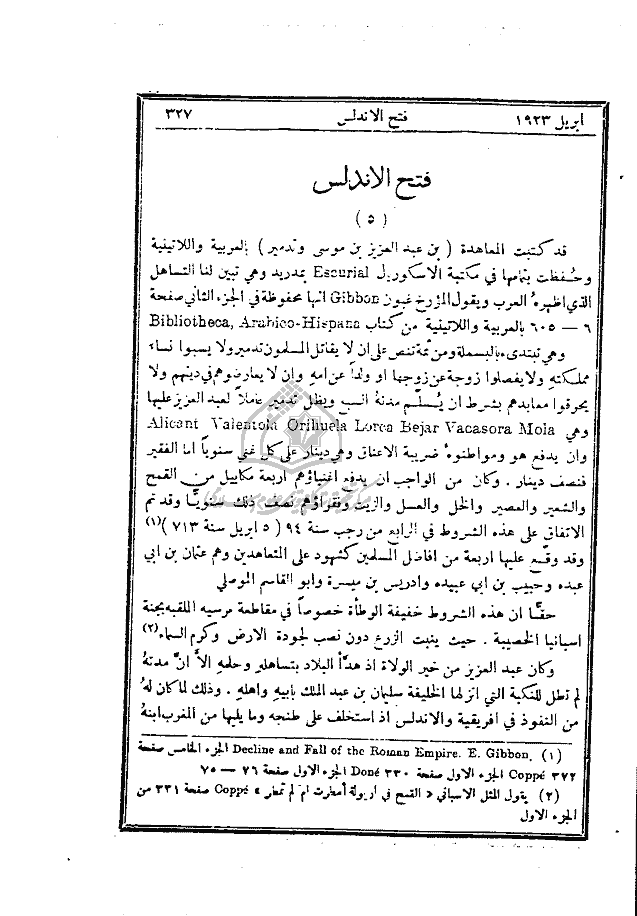 ابريل ١٩٢٣ فتح الاندلس ٣٢٧
فتح الاندلس
( ٥ )
قد كتبت المعاهدة ( بن عبد العزيز بن موسى وتدمير ) بالعربية واللاتينية
وحُفظت بتمامها في مكتبة الاسكوريل Escurial بمدريد وهي تبين لنا التساهل
الذي اظهرهُ العرب ويقول المؤرخ غبون Gibbon انها محفوظة في الجزء الثاني صفحة
٦ — ٦٠٥ بالعربية واللاتينية من كتاب Bibliotheca, Arabico-Hispana
وهي تبتدىء بالبسملة ومن ثمة تنص على ان لا يقاتل المسلمون تدمير ولا يسبوا نساء
مملكته ولا يفصلوا زوجة عن زوجها او ولداً عن امهِ وان لا يعارضوهم في دينهم ولا
يحرقوا معابدهم بشرط ان يُسلّم مدنهُ السبع ويظل تدمير عاملاً لعبد العزيز عليها
وهي Alicant Valentola Orihuela Lorca Bejar Vacasora Mola
وان يدفع هو ومواطنوهُ ضريبة الاعناق وهي دينار على كل غني سنوياً اما الفقير
فنصف دينار . وكان من الواجب ان يدفع اغنياؤهم اربعة مكاييل من القمح
والشعير والعصير والخل والعسل والزيت وفقراؤهم نصف ذلك سنويًّا وقد تم
الاتفاق على هذه الشروط في الرابع من رجب سنة ٩٤ ( ٥ ابريل سنة ٧١٣ )(١)
وقد وقّع عليها اربعة من افاضل المسلمين كشهود على المتعاهدين وهم عثمان بن ابي
عبده وحبيب بن ابي عبيده وادريس بن ميسرة وابو القاسم الموصلي
حقًّا ان هذه الشروط خفيفة الوطأة خصوصاً في مقاطعة مرسيه الملقبه بجنة
اسبانيا الخصيبة . حيث ينبت الزرع دون نصب لجودة الارض وكرم السماء(٢)
وكان عبد العزيز من خير الولاة اذ هدأ البلاد بتساهلهِ وحلمهِ الاَّ انَّ مدتهُ
لم تطل للنكبة التي انزلها الخليفة سليمان بن عبد الملك بابيهِ واهله . وذلك لما كان لهُ
من النفوذ في افريقية والاندلس اذ استخلف على طنجه وما يليها من المغرب ابنهُ
(١) Decline and Fall of the Roman Empire. E. Gibbon. الجزء الخامس صفحة
٣٧٢ Coppé الجزء الاول صفحة ٣٣٠ Doné الجزء الاول صفحة ٧٦ — ٧٥
(٢) يقول المثل الاسباني « القمح في اريولة أمطرت ام لم تمطر » Coppé صفحة ٣٣١ من
الجزء الاول